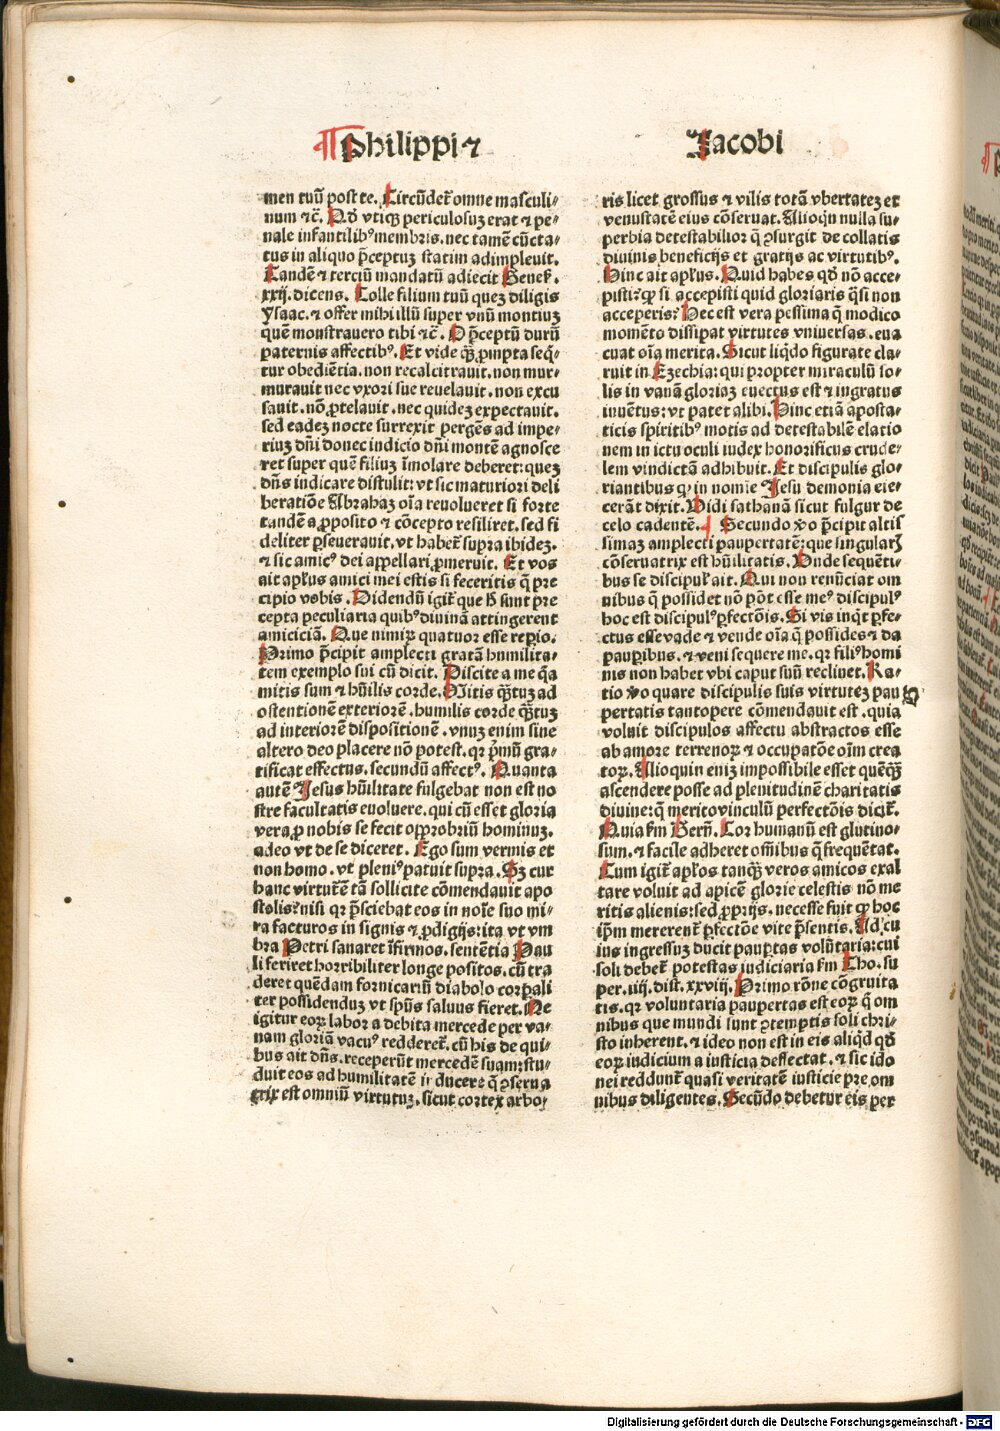 ¶ Philippi ⁊ Jacobi
men tuū post te. Circūdet᷑ omne masculi⸗
num ⁊c̄. Qd̄ vtiqȝ periculosuȝ erat ⁊ pe⸗
nale infantilibꝰ membris. nec tamē cūcta⸗
tus in aliquo p̄ceptuȝ statim adimpleuit.
Tandē ⁊ terciū mandatū adiecit Geneſ.
xxij. dicens. Tolle filium tuū queȝ diligis
Ysaac. ⁊ offer mihi illū super vnū montiuȝ
quē monstrauero tibi ⁊c̄. O p̄ceptū durū
paternis affectibꝰ. Et vide qȝ̄ ꝓmpta seq̄⸗
tur obediētia. non recalcitrauit. non mur⸗
murauit nec vxori sue reuelauit. non excu
sauit. nō ꝓtelauit. nec quideȝ expectauit.
sed eadeȝ nocte surrexit pergēs ad impe⸗
riuȝ dn̄i donec indicio dn̄i montē agnosce
ret super quē filiuȝ īmolare deberet: queȝ
dn̄s indicare distulit: vt sic maturiori deli
beratiōe Abrahaȝ oīa reuolueret si forte
tandē a ꝓposito ⁊ cōcepto resiliret. sed fi
deliter ꝑseuerauit. vt habet᷑ supra ibideȝ.
⁊ sic amicꝰ dei appellari ꝓmeruit. Et vos
ait apl̄us amici mei estis si feceritis q̄ pre
cipio vobis. Videndū igit᷑ que h̄ sunt pre
cepta peculiaria quibꝰ diuinā attingerent
amiciciā. Que nimiꝝ quatuor esse reperio.
Primo p̄cipit amplecti gratā humilita⸗
tem exemplo sui cū dicit. Discite a me q̄a
mitis sum ⁊ hūilis corde. Mitis qȝ̄tuȝ ad
ostentionē exteriorē. humilis corde qȝ̄tuȝ
ad interiorē dispositionē. vnuȝ enim sine
altero deo placere nō potest. qꝛ p̄mū gra⸗
tificat effectus. secundū affectꝰ. Quanta
autē Jesus hūilitate fulgebat non est no
stre facultatis euoluere. qui cū esset gloria
vera ꝓ nobis se fecit opprobriū hominuȝ.
adeo vt de se diceret. Ego sum vermis et
non homo. vt pleniꝰ patuit supra. Sȝ cur
hanc virtutē tā sollicite cōmendauit apo
stolis? nisi qꝛ p̄sciebat eos in noīe suo mi⸗
ra facturos in signis ⁊ ꝓdigijs: ita vt vm
bra Petri sanaret īfirmos. sentētia Pau
li feriret horribiliter longe positos. cū tra
deret quēdam fornicariū diabolo corꝑali
ter possidenduȝ vt spūs saluus fieret. Ne
igitur eoꝝ labor a debita mercede per va⸗
nam gloriā vacuꝰ redderet᷑. cū his de qui⸗
bus ait dn̄s. receperūt mercedē suam: stu⸗
duit eos ad humilitatē inducere q̄ ꝯserua
trix est omniū virtutuȝ. sicut cortex arbo⸗
ris licet grossus ⁊ vilis totā vbertateȝ et
venustatē eius cōseruat. Alioqn nulla su⸗
perbia detestabilior q̄ ꝯsurgit de collatis
diuinis beneficijs et gratijs ac virtutibꝰ.
Hinc ait apl̄us. Quid habes qd̄ nō acce⸗
pisti? ꝙ si accepisti quid gloriaris q̄si non
acceperis? Hec est vera pessima q̄ modico
momēto dissipat virtutes vniuersas. eua
cuat oīa merita. Sicut liq̄do figurate cla⸗
ruit in Ezechia: qui propter miraculū so⸗
lis in vanā gloriaȝ euectus est ⁊ ingratus
inuētus: vt patet alibi. Hinc etiā aposta⸗
ticis spiritibꝰ motis ad detestabilē elatio
nem in ictu oculi iudex honorificus crude⸗
lem vindictā adhibuit. Et discipulis glo⸗
riantibus qꝛ in nomīe Jesu demonia eie⸗
cerāt dixit. Vidi sathanā sicut fulgur de
celo cadentē. ¶ Secundo v̄o p̄cipit altis
simaȝ amplecti paupertatē: que singularꝭ
cōseruatrix est hūilitatis. Vnde sequēti⸗
bus se discipul᷑ ait. Qui non renūciat om
nibus q̄ possidet nō pōt esse meꝰ discipulꝰ
hoc est discipulꝰ ꝑfectōis. Si vis inqt ꝑfe⸗
ctus esse vade ⁊ vende oīa q̄ possides ⁊ da
pauꝑibus. ⁊ veni sequere me. qꝛ filiꝰ homi
nis non habet vbi caput suū reclinet. Ra⸗
tio v̄o quare discipulis suis virtuteȝ pau
pertatis tantopere cōmendauit est. quia
voluit discipulos affectu abstractos esse
ab amore terrenoꝝ ⁊ occupatōe oīm crea
toꝝ. Alioquin eniȝ impossibile esset quēqȝ̄
ascendere posse ad plenitudinē charitatis
diuine: q̄ merito vinculū perfectōis dicit᷑.
Quia fm Bern̄. Cor humanū est glutino⸗
sum. ⁊ facile adheret oībus q̄ frequētat.
Cum igit᷑ apl̄os tanqȝ̄ veros amicos exal
tare voluit ad apicē glorie celestis nō me
ritis alienis: sed ꝓprijs. necesse fuit ꝙ hoc
ip̄m mererent᷑ ꝑfectōe vite p̄sentis. Ad cu
ius ingressuȝ ducit pauꝑtas volūtaria: cui
soli debet᷑ potestas iudiciaria fm Tho. su
per. iiij. dist. xxviij. Primo rōne cōgruita
tis. qꝛ voluntaria paupertas est eoꝝ q̄ om
nibus que mundi sunt ꝯtemptis soli chri⸗
sto inherent. ⁊ ideo non est in eis aliqd qd̄
eoꝝ iudicium a iusticia deflectat. ⁊ sic ido
nei reddunt᷑ quasi veritatē iusticie pre om
nibus diligentes. Secūdo debetur eis per
Digitalisierung gefördert durch die Deutsche Forschungsgemeinschaft - DFG